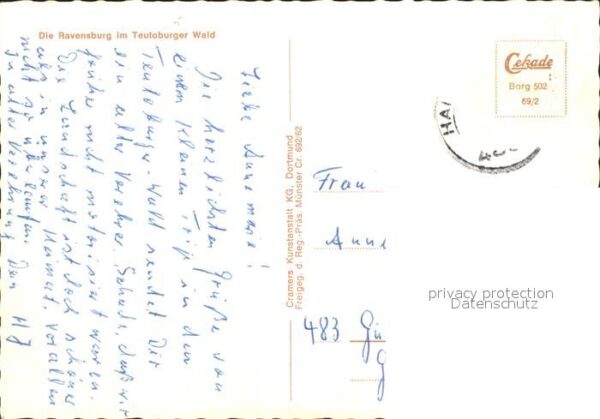 Die Ravensburg im Teutoburger Wald
Liebe Annemarie!
Die herzlichsten Grüße von
einem kleinen Trip in den
Teutoburger-Wald sendet Dir
ein alter Verehrer. Schade, daß wir
früher nicht motorisiert waren.
Die Landschaft ist doch schöner
als in unserer Heimat. Vor allem
nicht so überlaufen.
In alter Dein
Cramers Kunstanstalt KG, Dortmund
Freigeg. d. Reg.-Präs. Münster Cr. 692/62
Cekade
Borg 502
69/2
HAL
Frau
Anne
483 Gü
G
privacy protection
Datenschutz